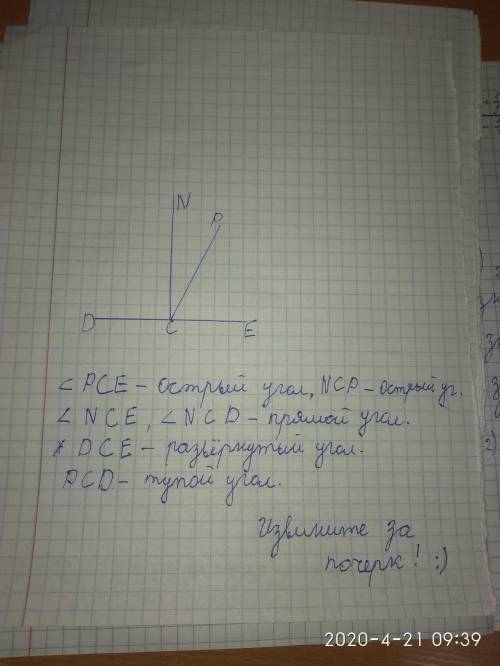 N
P
D
C
E
∠ PCE – острый угол, NCP – острый уг.
∠ NCE, ∠ NCD – прямой угол.
∠ DCE – развёрнутый угол.
PCD – тупой угол.
Извините за
почерк! :)
2)
2020-4-21 09:39